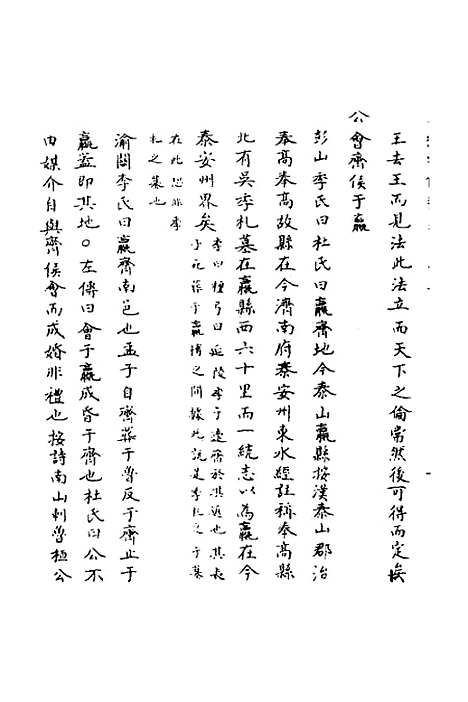 王去王而見法此法立而天下之倫常然後可得而定矣
公會齊侯于嬴
彭山季氏曰杜氏曰嬴齊地今泰山嬴縣按漢泰山郡治
奉高奉高故縣在今濟南府泰安州東水經註稱奉高縣
北有吳季札墓在嬴縣西六十里而一統志以為嬴在今
泰安州界矣
季曰檀弓曰延陵季子適齊於其返也其長
子死葬于嬴博之間據此説是季札之子墓
在此恐非季
札之墓也
渝關李氏曰嬴齊南邑也孟子自齊葬于魯反于齊止于
嬴蓋即其地〇左傳曰會于嬴成昏于齊也杜氏曰公不
由媒介自與齊侯會而成婚非禮也按詩南山刺魯桓公